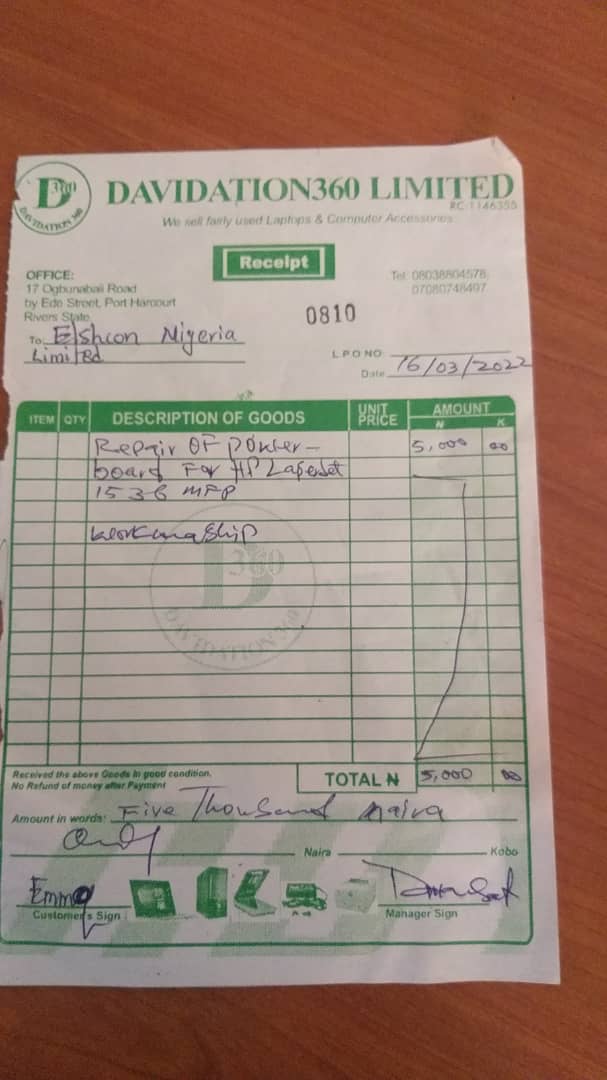 D 360
DAVIDATION 360
DAVIDATION360 LIMITED
RC-1146355
We sell fairly used Laptops & Computer Accessories
Receipt
OFFICE:
17 Ogbunabali Road
by Edo Street, Port Harcourt
Rivers State
Tel: 08038804578
07080748407
0810
To: Elshcon Nigeria
Limited
L.P.O NO
Date 16/03/2022
ITEM QTY DESCRIPTION OF GOODS UNIT PRICE AMOUNT
N K
Repair OF power- 5,000 00
board For HP Laserjet
1536 MFP
workmaship
D 360
DAVIDATION 360
Received the above Goods in good condition.
No Refund of money after Payment
TOTAL N 5,000 00
Amount in words: Five Thousand Naira
only Naira Kobo
Emma
Customer's Sign Manager Sign